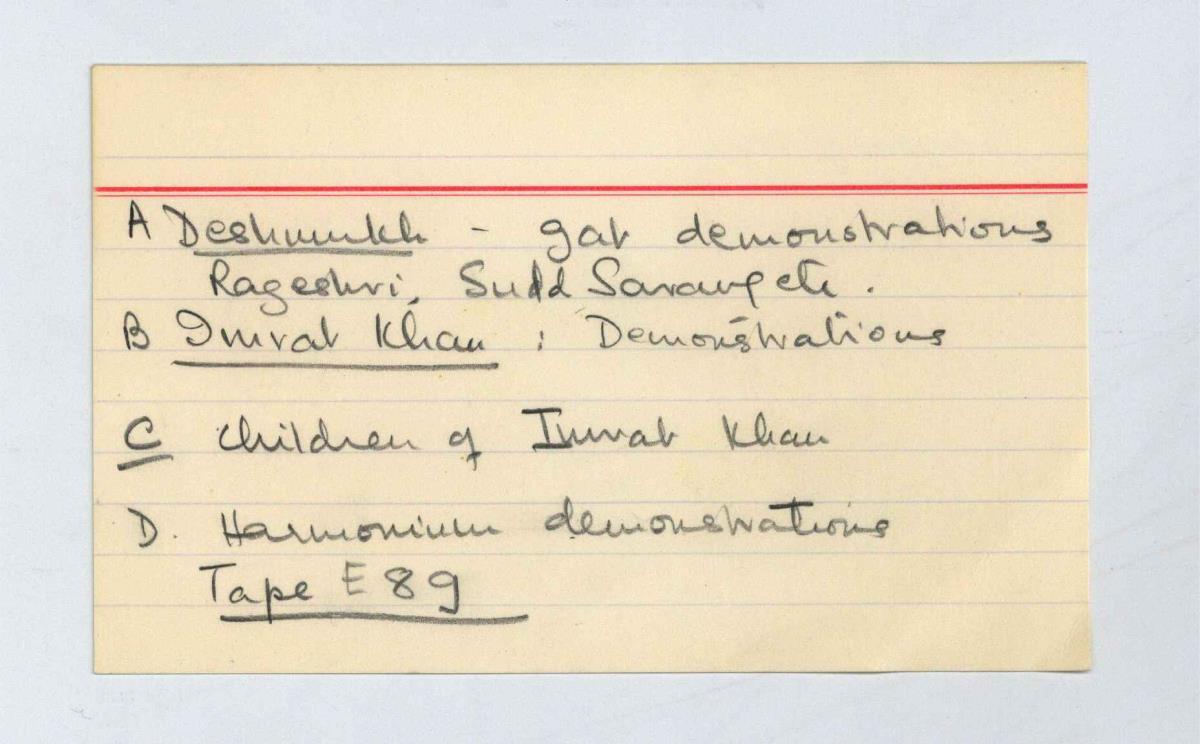 A Deshmukh - gat demonstrations
Rageshri, Sudd Sarang etc.
B Imrat Khan : Demonstrations
C Children of Imrat Khan
D. Harmonium demonstrations
Tape E 89